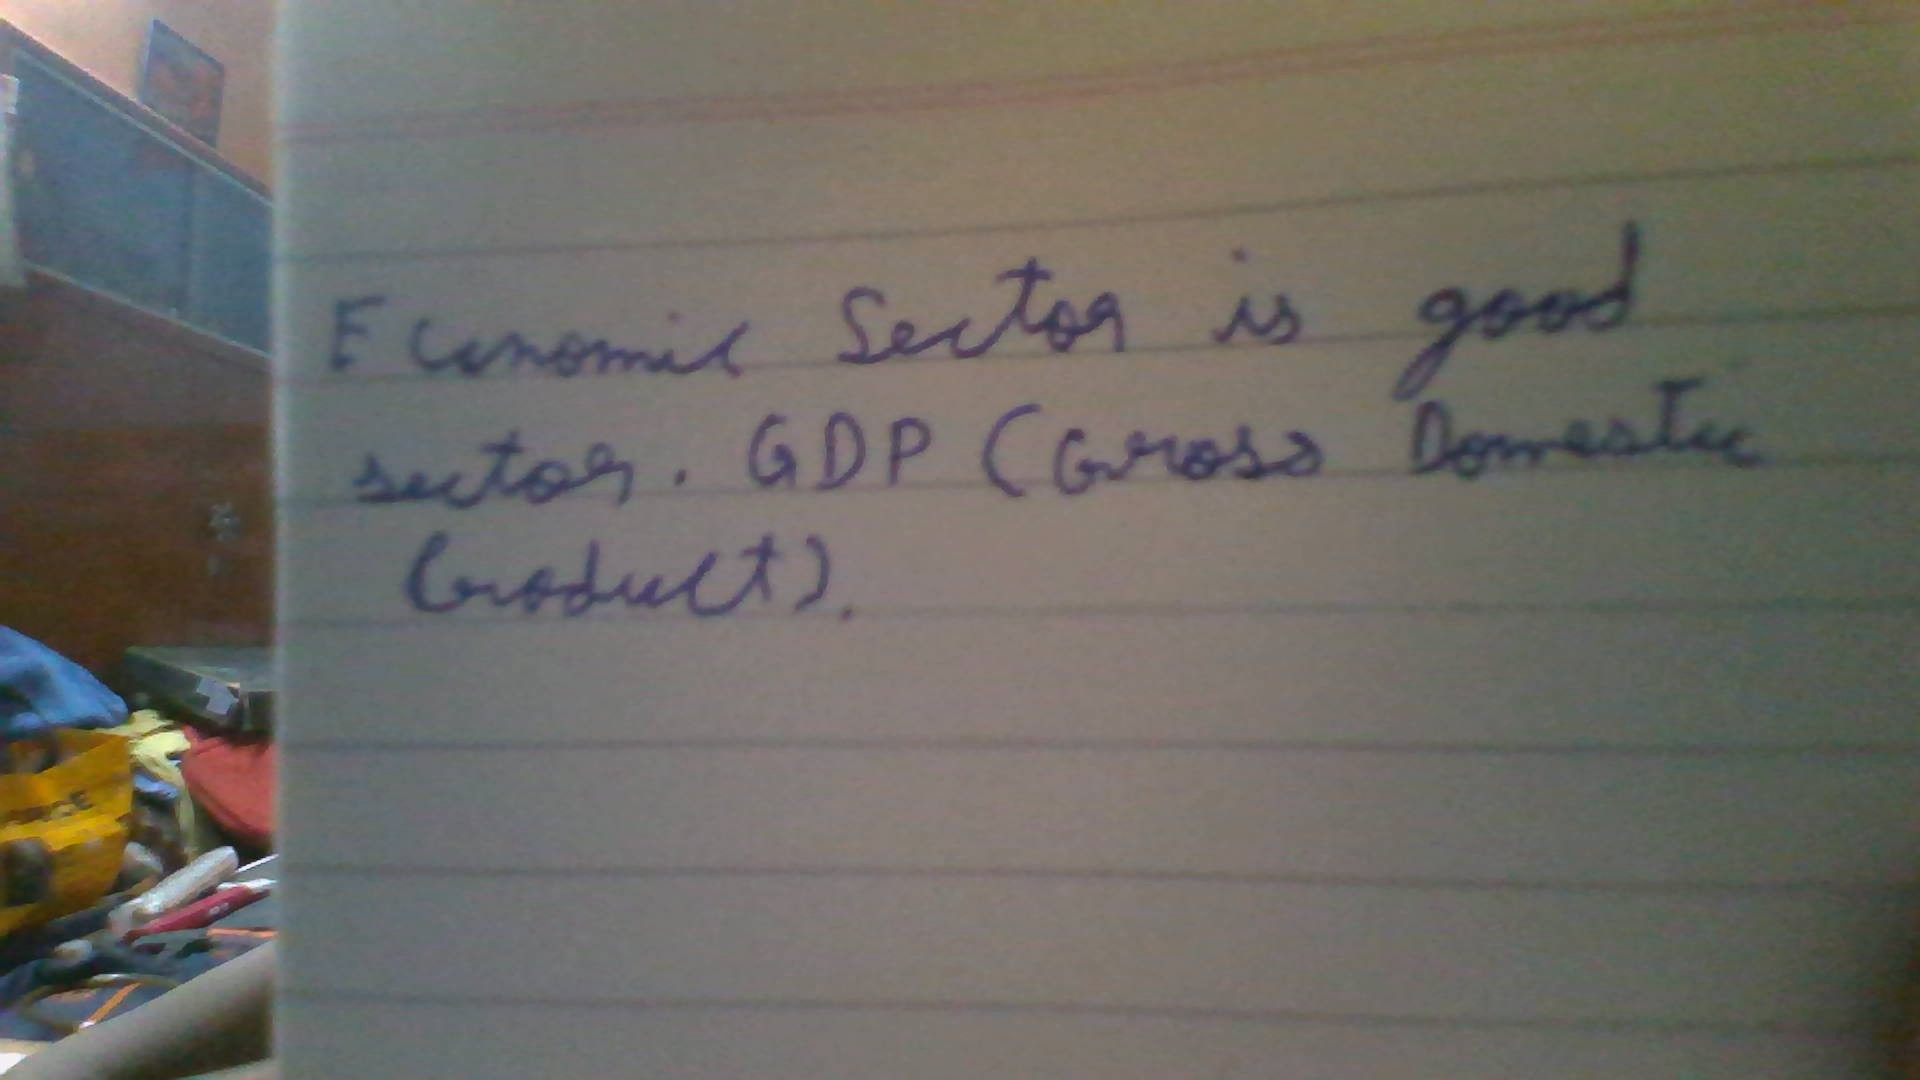 Economic Sector is good
sector. GDP (Gross Domestic
Product).